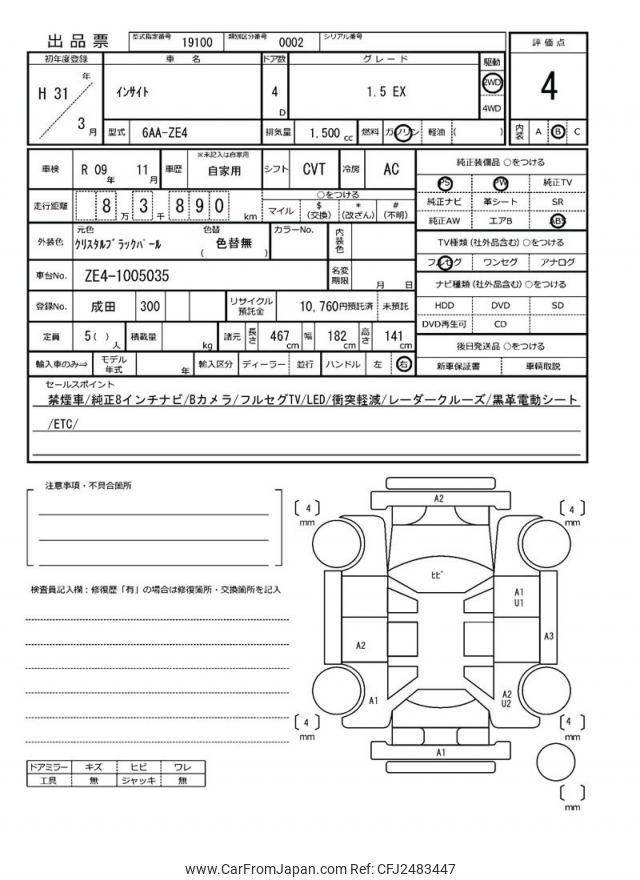 出品票 型式指定番号 19100 類別区分番号 0002 シリアル番号
初年度登録 車 名 ドア数 グレード 駆動 評価点
H 31 年 3 月 インサイト 4 D 1.5 EX 2WD 4WD 4
型式 6AA-ZE4 排気量 1.500 cc 燃料 ガソリン 軽油 ( ) 内装 A B C
車検 R 09 年 11 月 車歴 ※未記入は自家用 自家用 シフト CVT 冷房 AC
純正装備品 ○をつける
PS PW 純正TV
純正ナビ 革シート SR
純正AW エアB ABS
走行距離 8 万 3 千 8 9 0 km ○をつける マイル $ (交換) * (改ざん) # (不明)
外装色 元色 クリスタルブラックパール 色替 ( 色替無 ) カラーNo. 内装色
TV種類 (社外品含む) ○をつける
フルセグ ワンセグ アナログ
車台No. ZE4-1005035 名変期限 月 日
ナビ種類 (社外品含む) ○をつける
HDD DVD SD
DVD再生可 CD
登録No. 成田 300 リサイクル預託金 10,760円預託済 未預託
定員 5 ( ) 人 積載量 kg 諸元 長さ 467 cm 幅 182 cm 高さ 141 cm
後日発送品 ○をつける
新車保証書 車輌取説
輸入車のみ⇒ モデル年式 年 輸入区分 ディーラー 並行 ハンドル 左 右
セールスポイント
禁煙車/純正8インチナビ/Bカメラ/フルセグTV/LED/衝突軽減/レーダークルーズ/黒革電動シート
/ETC/
注意事項・不具合箇所
検査員記入欄：修復歴「有」の場合は修復箇所・交換箇所を記入
A2
4 mm
4 mm
ヒビ
A1
U1
A2
A3
A1
A2
U2
4 mm
4 mm
A1
mm
ドアミラー キズ ヒビ ワレ
工具 無 ジャッキ 無
www.CarFromJapan.com Ref: CFJ2483447